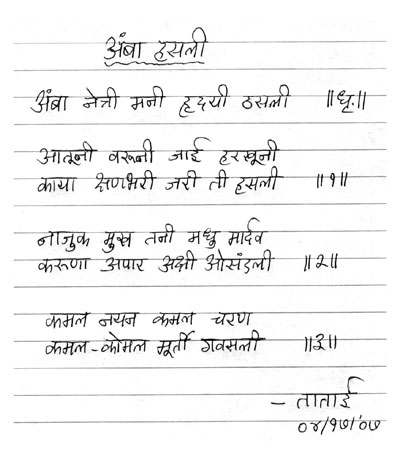 अंबा हसली
अंबा नेत्री मनी हृदयी ठसली ॥धृ.॥
आतूनी वरूनी जाई हरखूनी
काया क्षणभरी जरी ती हसली ॥१॥
नाजुक मुख तनी मधु मार्दव
करूणा अपार अक्षी ओसंडली ॥२॥
कमल नयन कमल चरण
कमल-कोमल मूर्ती गवसली ॥३॥
- ताताई
०४/१७/'०७